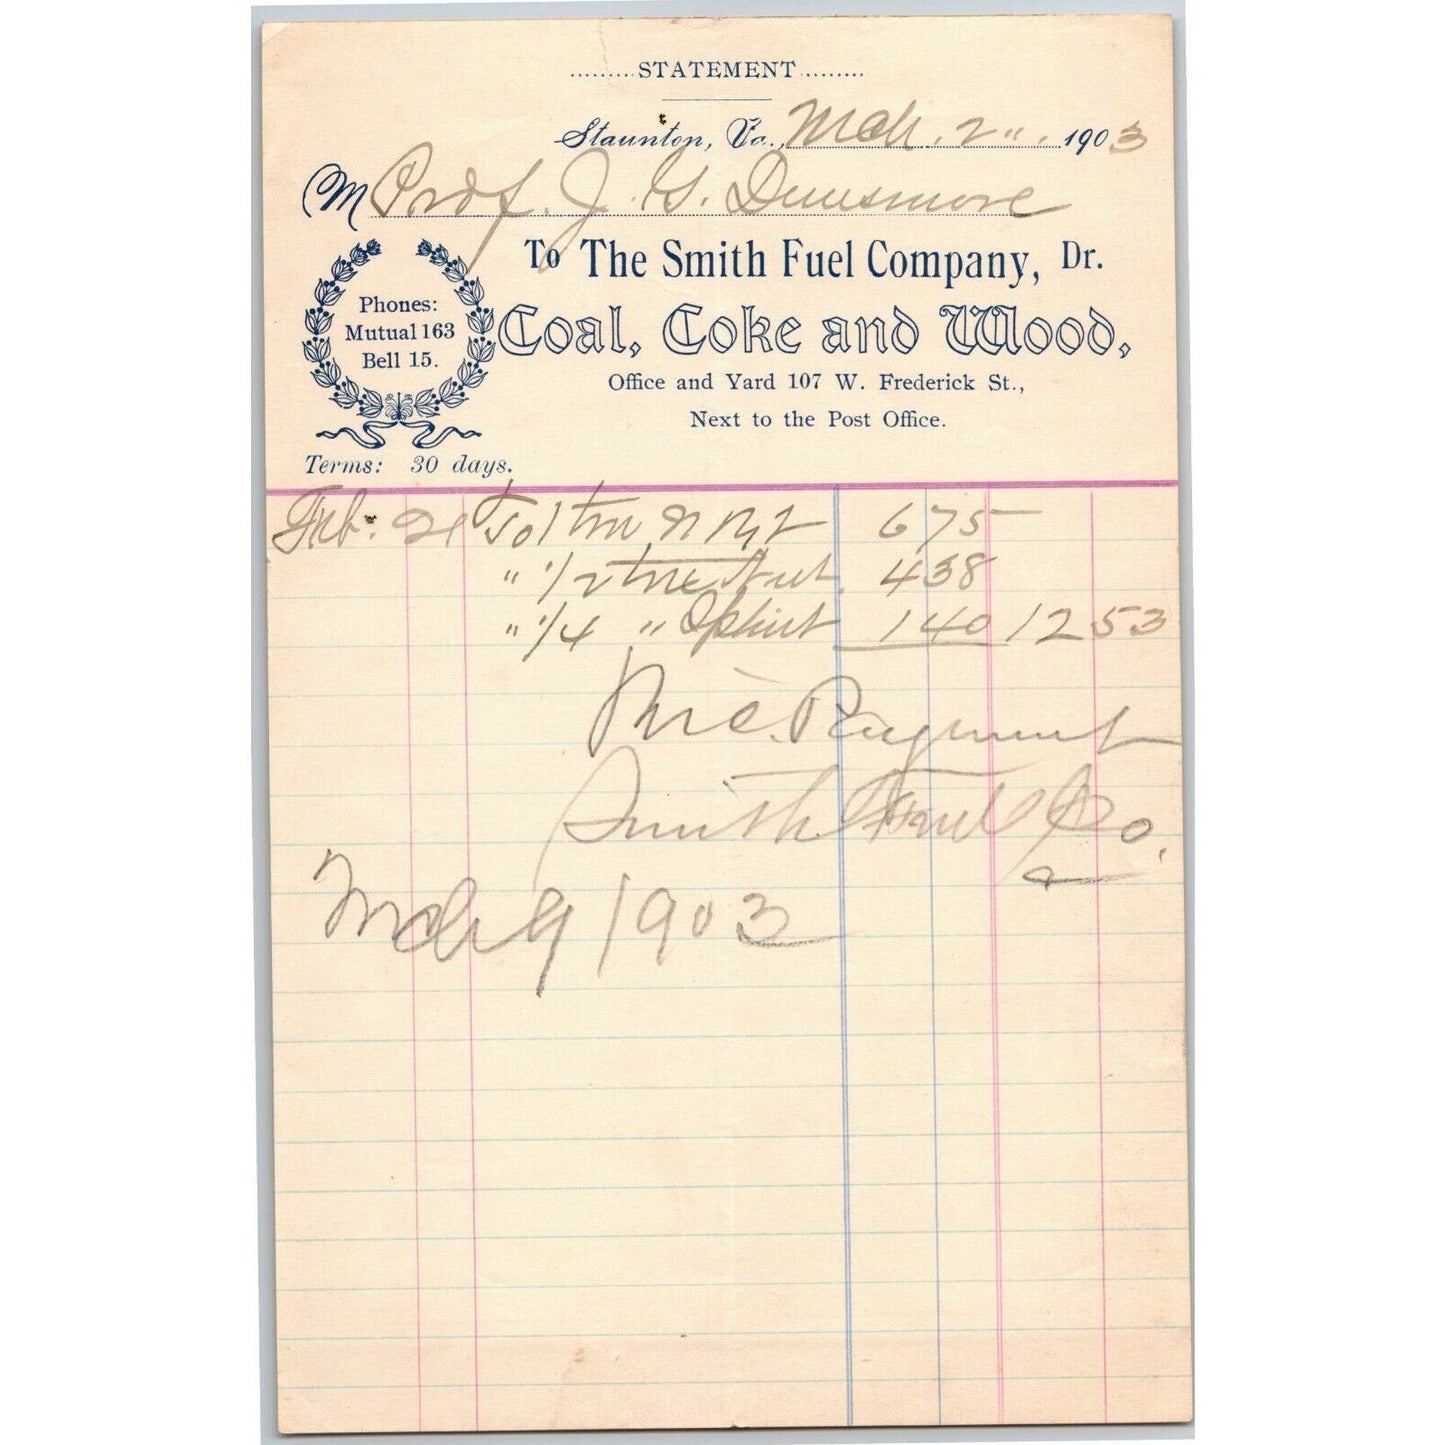 STATEMENT
Staunton, Va., Mch. 2", 1903
M Prof. J. G. Dunsmore
To The Smith Fuel Company, Dr.
Phones:
Mutual 163
Bell 15.
Coal, Coke and Wood,
Office and Yard 107 W. Frederick St.,
Next to the Post Office.
Terms: 30 days.
Feb. 21 To 1 ton 675
" 1/2 ton Nut. 438
" 1/4 " Splint 140 12 53
Rec. Payment
Smith Fuel Co.
Mch 9 1903